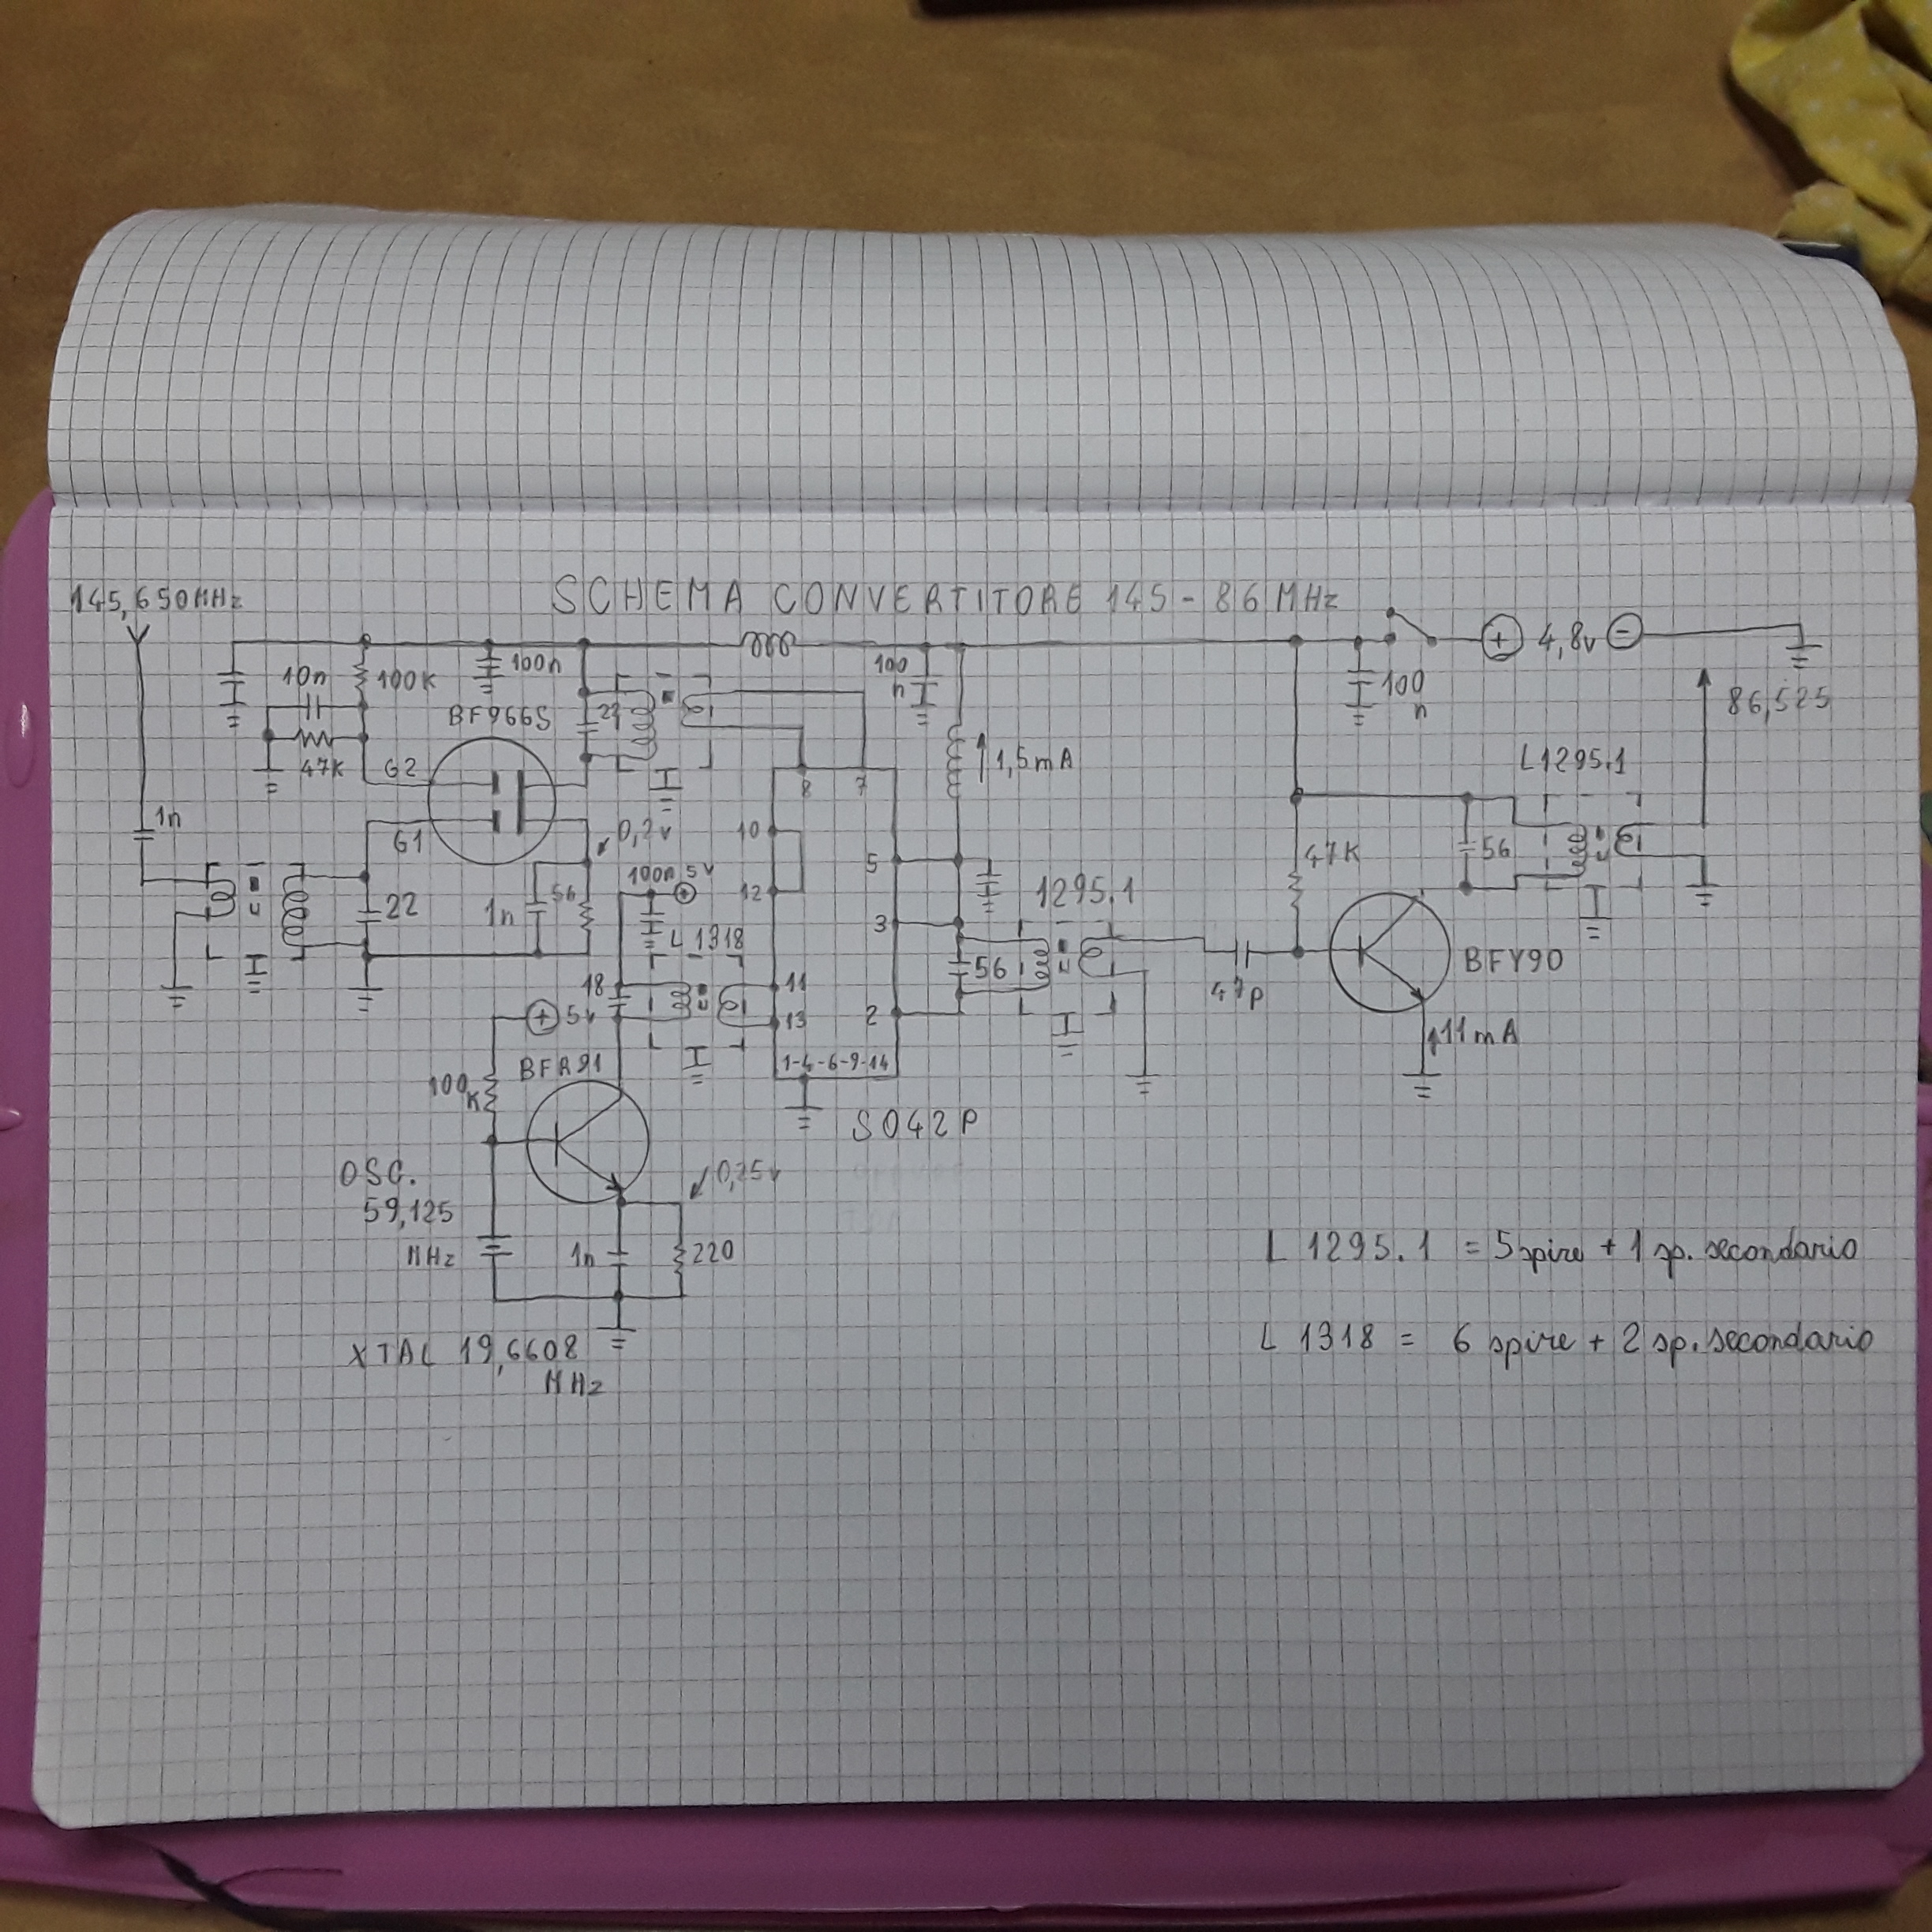 SCHEMA CONVERTITORE 145-86 MHz
145,650MHz
4,8v
100n
10n
100K
BF966S
100
n
1,5mA
100
n
86,525
47K
G2
8
7
L1295.1
1n
G1
0,2v
10
5
47K
56
100n 5v
12
1295.1
22
1n
56
3
L1318
BFY90
18
11
56
47p
5v
13
2
11mA
BFR91
1-4-6-9-14
100
K
S042P
OSC.
59,125
MHz
0,25v
1n
220
L 1295.1 = 5 spire + 1 sp. secondario
XTAL 19,6608
MHz
L 1318 = 6 spire + 2 sp. secondario